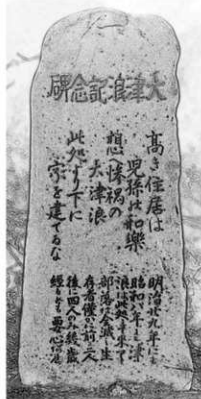 大津浪記念碑
高き住居は
児孫の和楽
想へ惨禍の
大津浪
此処より下に
家を建てるな
明治廿九年にも
昭和八年にも津
浪は此処まで来て
部落は全滅し生
存者僅かに前に二人
後に四人のみ幾歳
経るとも要心あれ